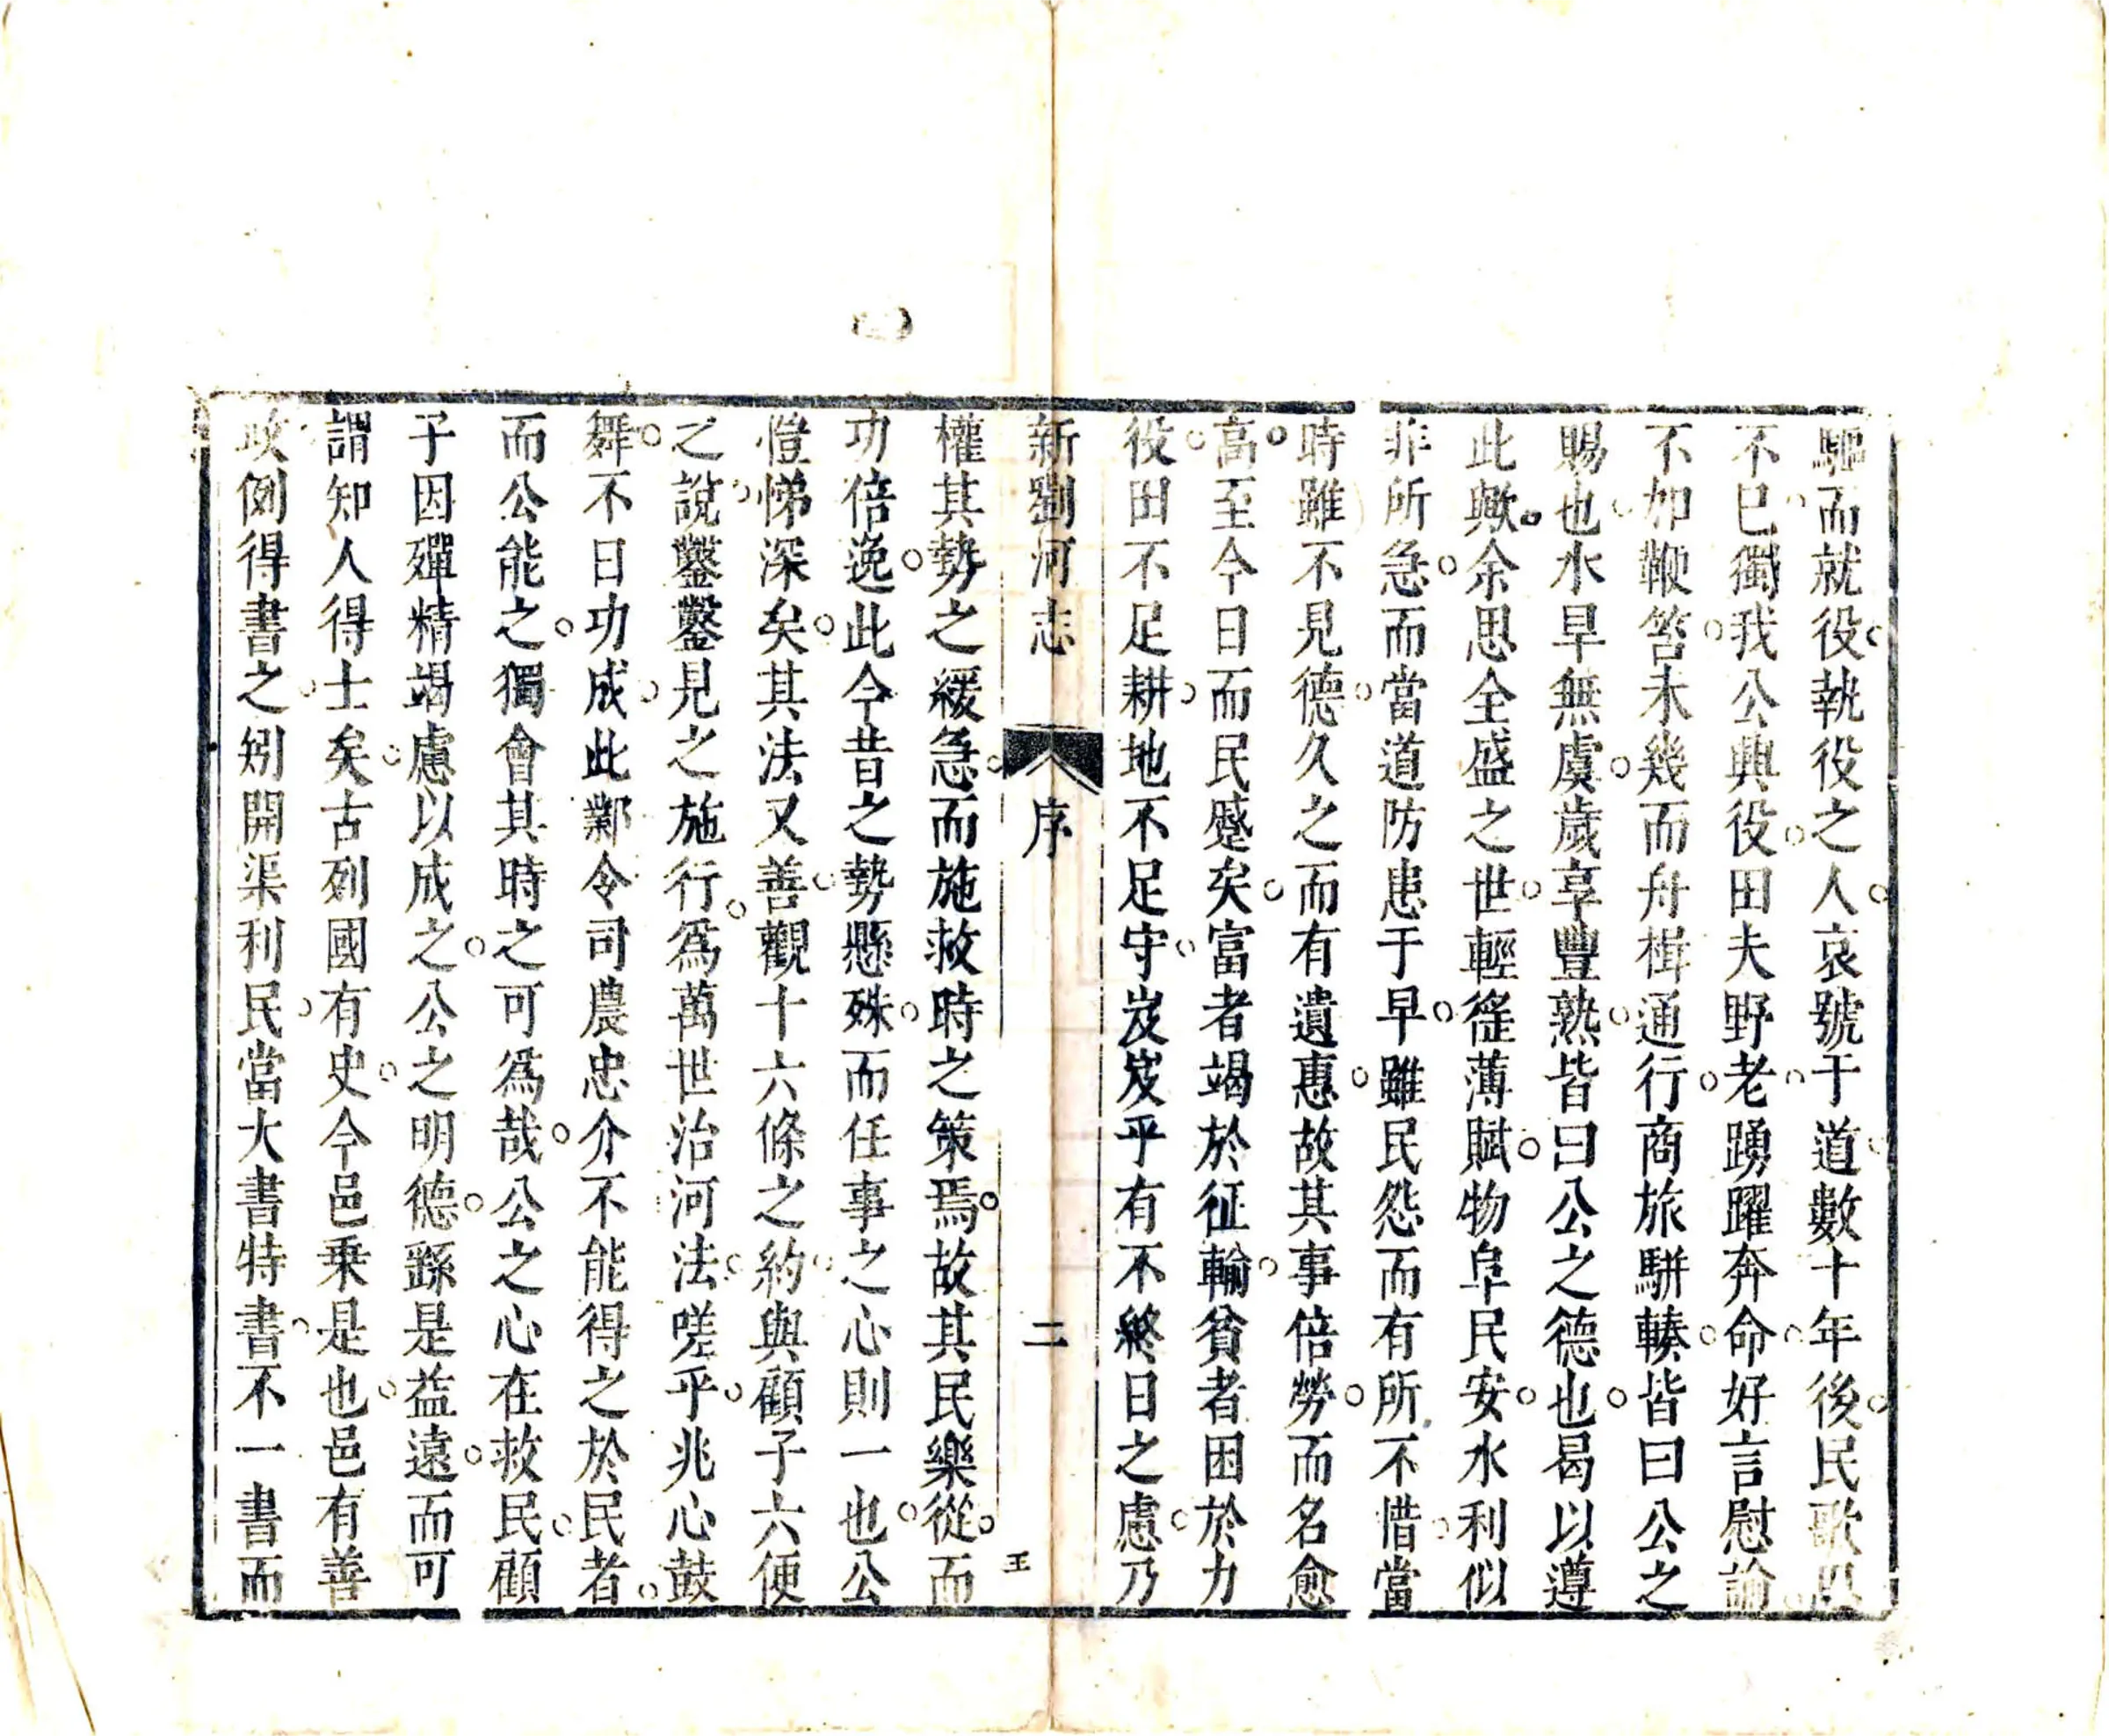 驅而就役執役之人哀號于道數十年後民歌思
不已獨我公典役田夫野老踴躍奔命好言慰諭
不加鞭笞未幾而舟楫通行商旅駢輳皆曰公之
賜也水旱無虞歲享豐熟皆曰公之德也曷以遵
此歟余思全盛之世輕徭薄賦物阜民安水利似
非所急而當道防患于早雖民怨而有所不惜當
時雖不見德久之而有遺惠故其事倍勞而名愈
高至今日而民蹙矣富者竭於征輸貧者困於力
役田不足耕地不足守岌岌乎有不終日之慮乃
新劉河志 序 二 王
權其勢之緩急而施救時之策焉故其民樂從而
功倍逸此今昔之勢懸殊而任事之心則一也公
愷悌深矣其法又善觀十六條之約與顧子六便
之說鑿鑿見之施行為萬世治河法嗟乎兆心鼓
舞不日功成此鄴令司農忠介不能得之於民者
而公能之獨會其時之可為哉公之心在救民顧
子因殫精竭慮以成之公之明德繇是益遠而可
謂知人得士矣古列國有史今邑乗是也邑有善
政例得書之矧開渠利民當大書特書不一書而